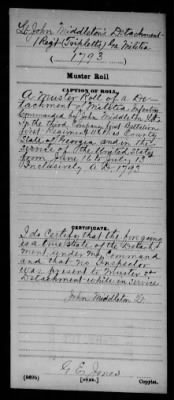 Lt John Middleton's Detachment
1 Regt (Triplett's) Ga Militia
(1793)
Muster Roll
CAPTION OF ROLL
A Muster Roll of a De-
tachment of Militia, Infantry
Commanded by John Middleton Lt
In the third Company first Battalion
first Regiment Wilkes County
State of Georgia and in the
service of the United States
from June 16 to July 15
Inclusively A.D. 1793
CERTIFICATE.
I do Certify that the foregoing
is a true State of the Detach-
ment under my Command
and that no Inspector
was present to Muster
Detachment while in Service
John Middleton Lt.
G E Jones
Copyist.